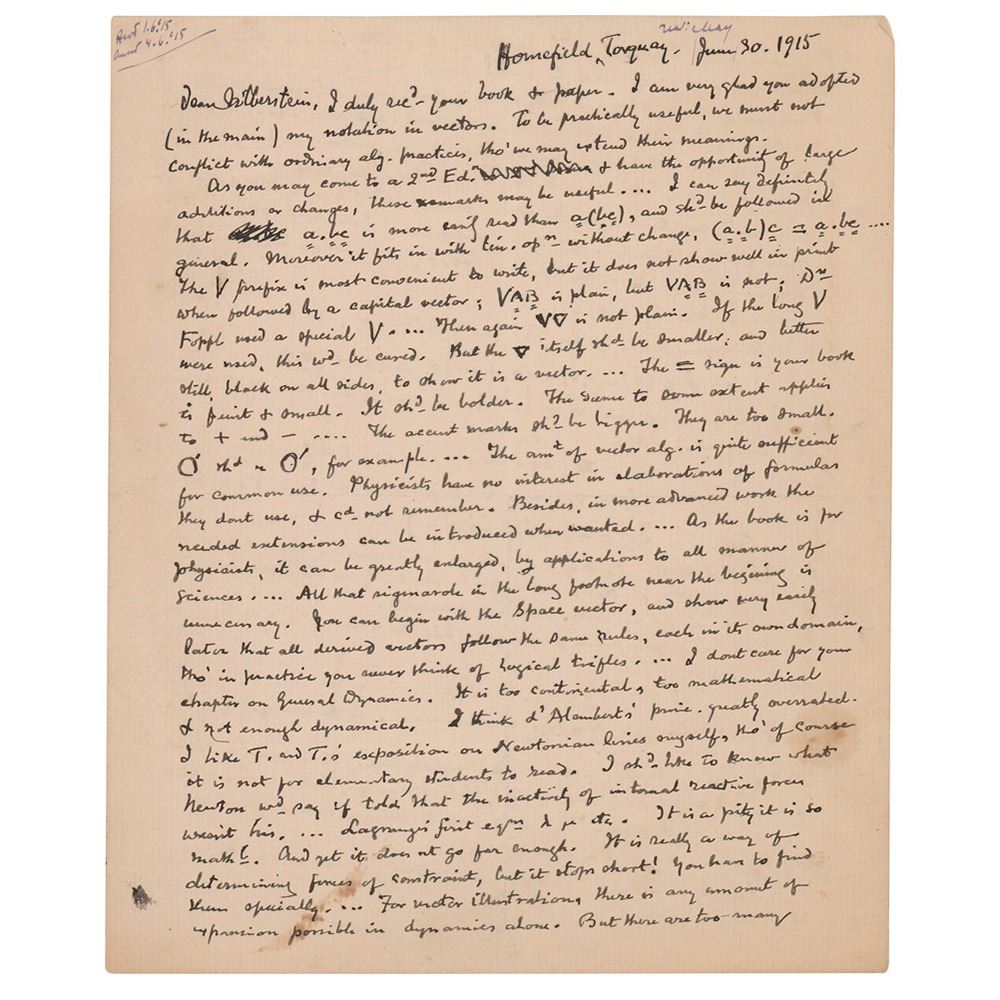 Homefield, Torquay. June 30. 1915
Dear Silberstein, I duly recd your book & paper. I am very glad you adopted
(in the main) my notation in vectors. To be practically useful, we must not
conflict with ordinary alg. practices, tho' we may extend their meanings.
As you may come to a 2nd Ed. & have the opportunity of large
additions or changes, these remarks may be useful .... I can say definitely
that a.bc is more easily read than a(bc), and shd be followed in
general. Moreover it fits in with lin. opn without change, (a.b)c = a.bc ....
The V prefix is most convenient to write, but it does not show well in print
when followed by a capital vector; VAB is plain, but VAB is not; Dr
Foppl used a special V. ... Then again V∇ is not plain. If the long V
were used, this wd be cured. But the ∇ itself shd be smaller; and better
still, black on all sides, to show it is a vector. ... The = sign in your book
is faint & small. It shd be bolder. The same to some extent applies
to + and - .... The accent marks shd be bigger. They are too small.
O' shd be O', for example. ... The amt of vector alg. is quite sufficient
for common use. Physicists have no interest in elaborations of formulas
they dont use, & cd not remember. Besides, in more advanced work the
needed extensions can be introduced when wanted. ... As the book is for
physicists, it can be greatly enlarged, by applications to all manner of
sciences. ... All that rigmarole in the long footnote near the begining is
unnecessary. You can begin with the Space vector, and show very easily
later that all derived vectors follow the same rules, each in its own domain,
tho' in practice you never think of logical trifles. ... I dont care for your
chapter on General Dynamics. It is too continental, too mathematical
& not enough dynamical. I think d'Alembert's princ. greatly overrated.
I like T. and T.'s exposition on Newtonian lines myself, tho' of course
it is not for elementary students to read. I shd like to know what
Newton wd say if told that the inactivity of internal reactive forces
wasn't his. ... Lagrange's first eqns λ μ etc. It is a pity it is so
mathl. And yet it does not go far enough. It is really a way of
determining forces of constraint, but it stops short! You have to find
them specially. ... For vector illustrations there is any amount of
expansion possible in dynamics alone. But there are too many